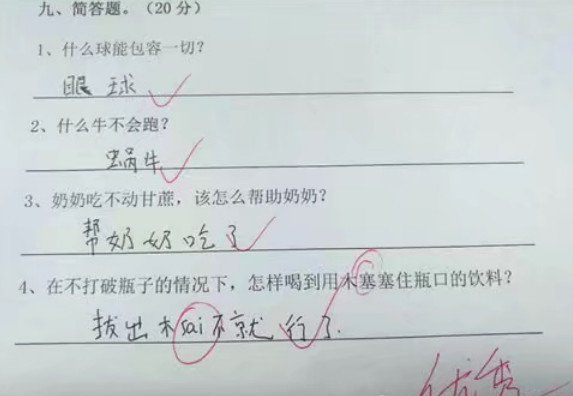 九、简答题。（20分）
1、什么球能包容一切？
眼球
2、什么牛不会跑？
蜗牛
3、奶奶吃不动甘蔗，该怎么帮助奶奶？
帮奶奶吃了
4、在不打破瓶子的情况下，怎样喝到用木塞塞住瓶口的饮料？
拔出木sai不就行了.
优秀